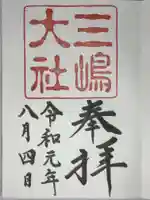 奉拝
三嶋
大社
令和元年
八月四日